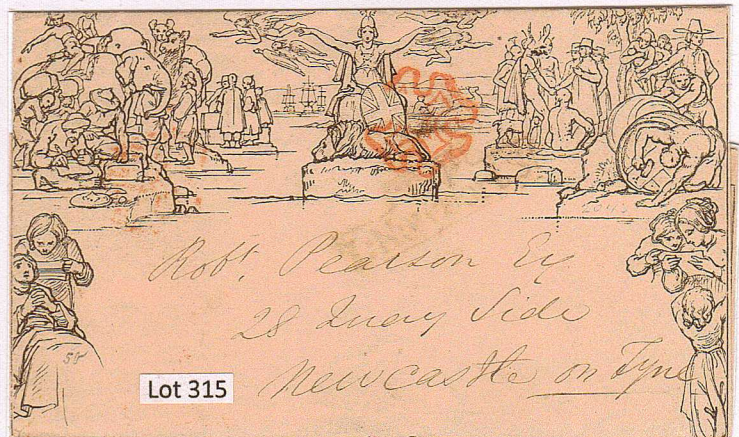 Robt. Pearson Esq
28 Quay Side
Newcastle on Tyne
Lot 315